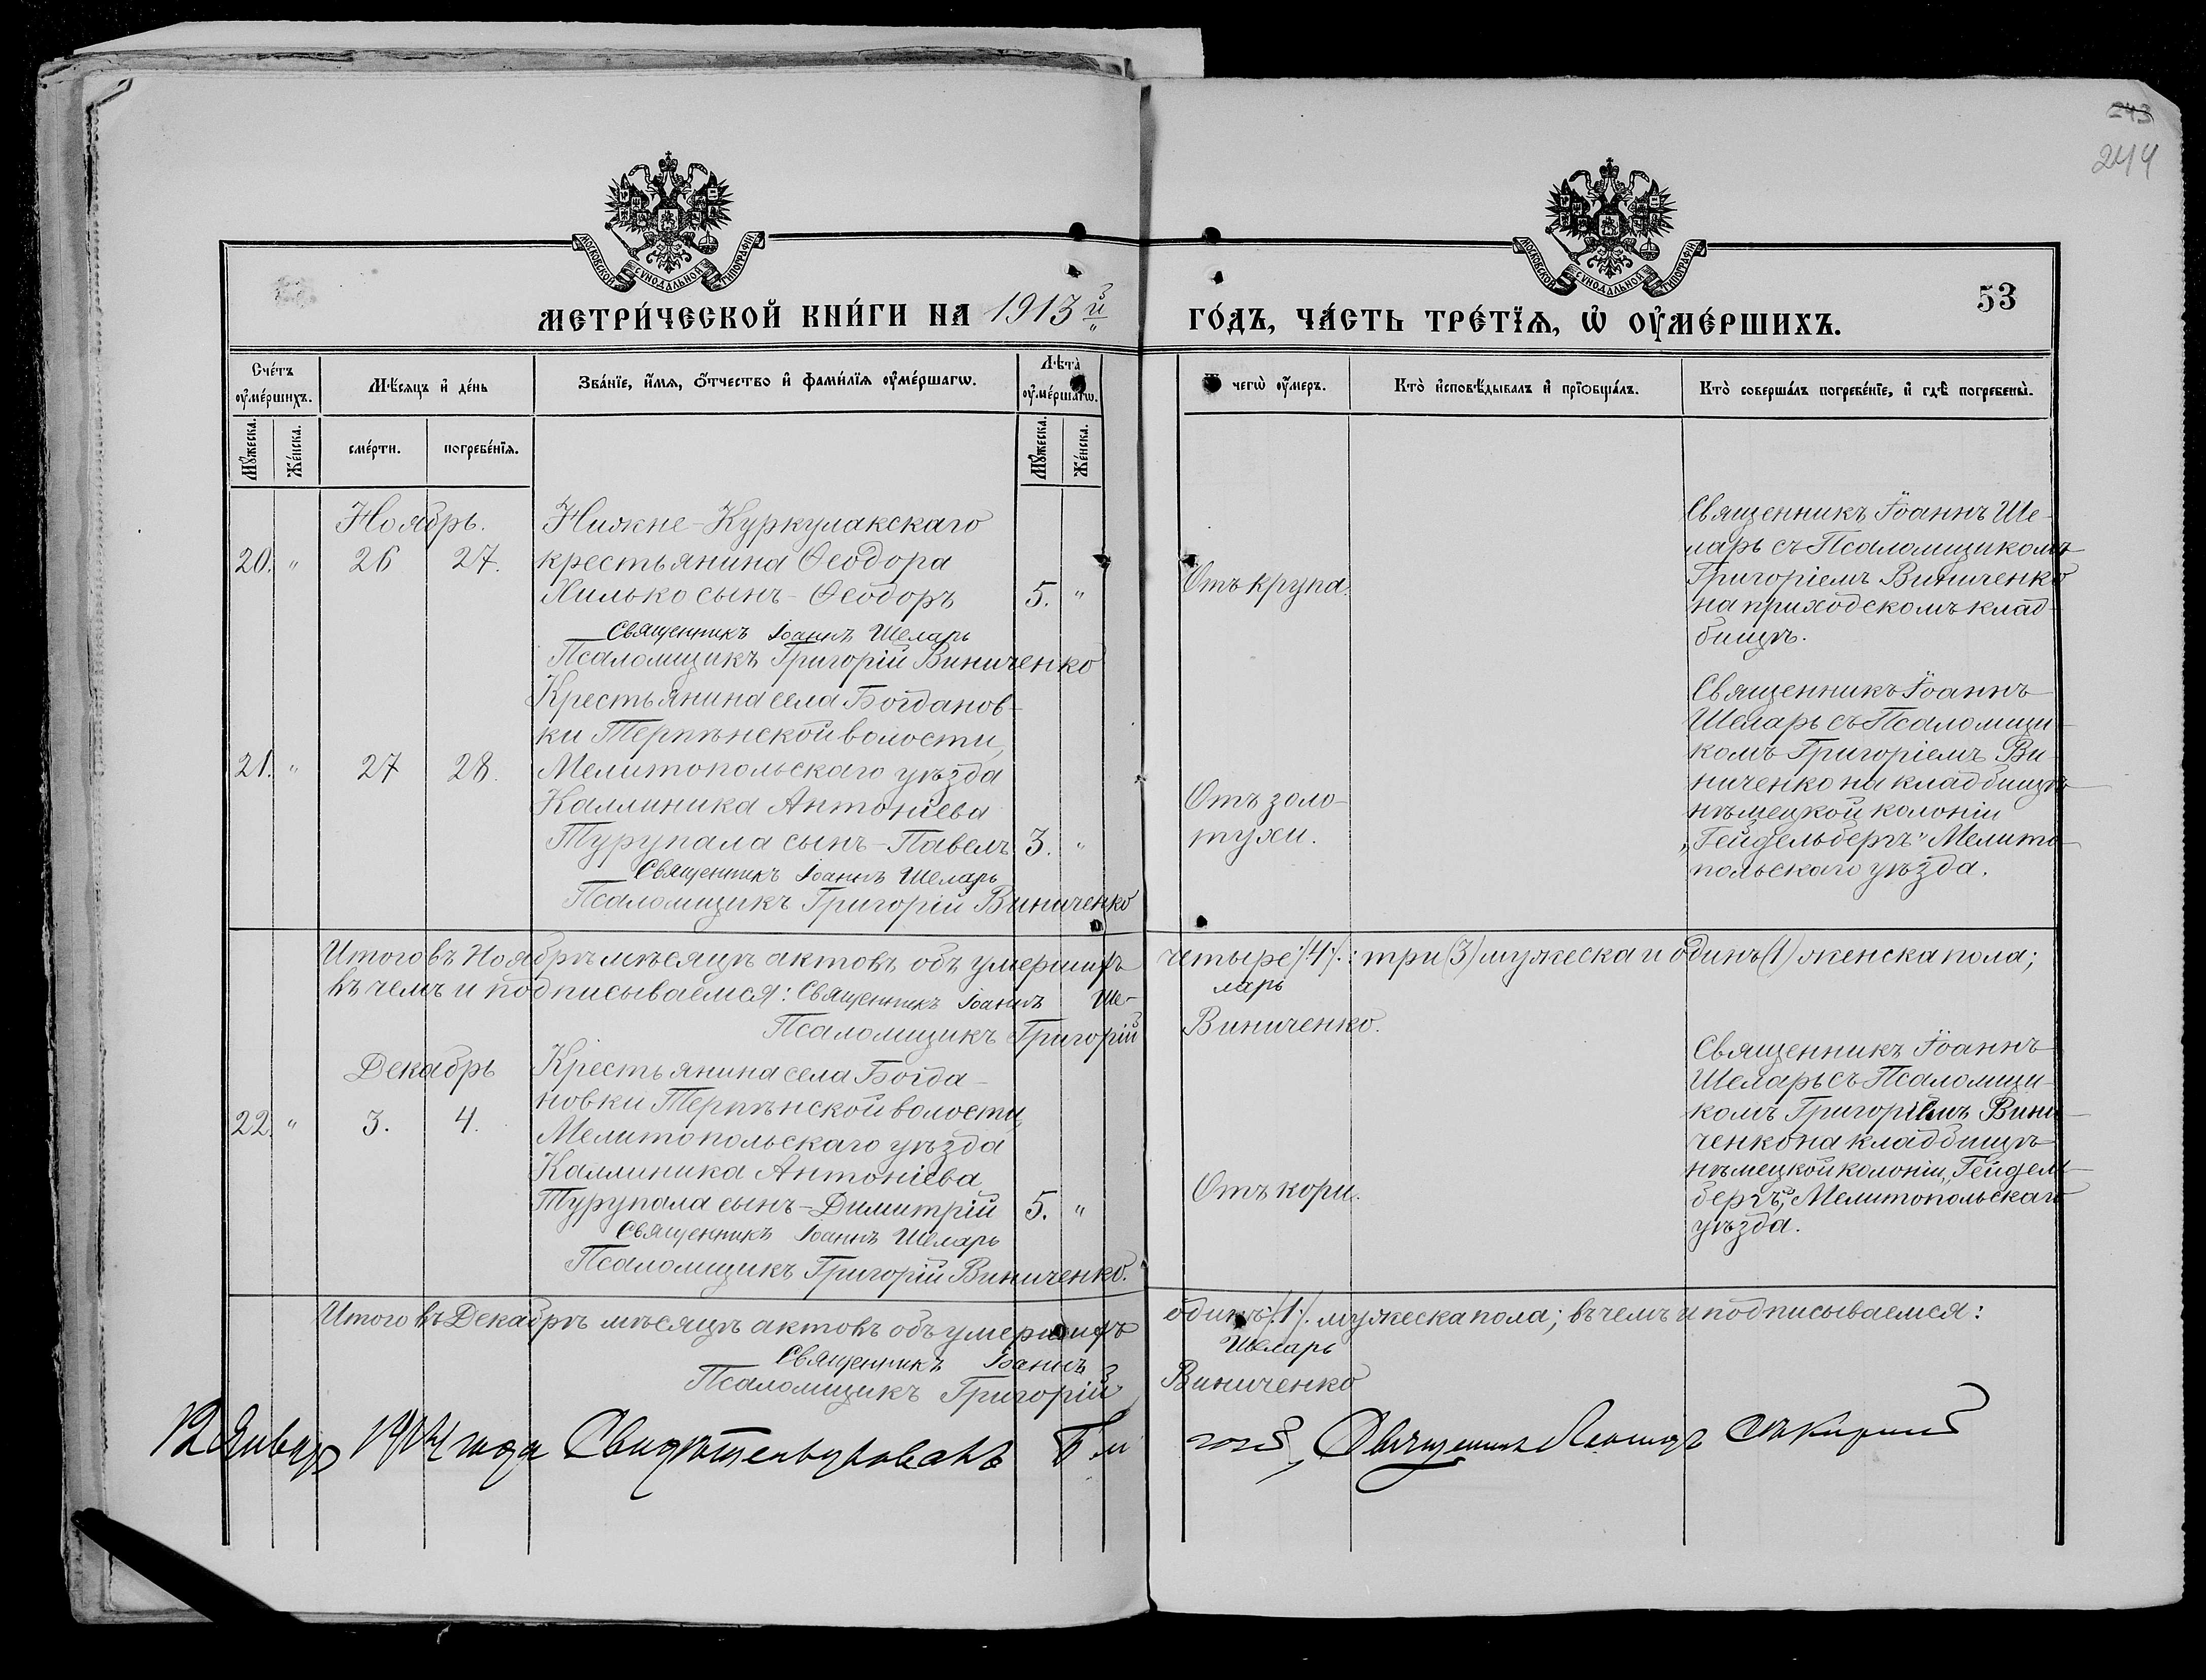 243
244
МОСКОВСКОЙ СѴНОДАЛЬНОЙ ТИПОГРАФІИ
МОСКОВСКОЙ СѴНОДАЛЬНОЙ ТИПОГРАФІИ
МЕТРИ́ЧЕСКОЙ КНИ́ГИ НА 1913й
ГО́ДЪ, ЧА́СТЬ ТРЕ́ТЇѦ, Ѡ҆ ОУ҆МЕ́РШИХЪ.
53
Сче́тъ оу҆ме́ршихъ.
Мѣ́сяцъ и҆ де́нь
Зва́нїе, и҆́мѧ, ѻ҆́тчество и҆ фами́лїѧ оу҆ме́ршагѡ.
Лѣ̀та оу҆ме́ршагѡ.
Ѿ чегѡ̀ оу҆́меръ.
Кто̀ и҆сповѣ́дывалъ и҆ прїѻбща́лъ.
Кто̀ соверша́лъ погребе́нїе, и҆ гдѣ̀ погребены̀.
Мꙋ́жеска.
Же́нска.
сме́рти.
погребе́нїѧ.
Мꙋ́жеска.
Же́нска.
Ноябрь.
20. " 26 27.
Нижне-Куркулакскаго
крестьянина Ѳеодора
Хилько сынъ - Ѳеодоръ 5. "
Священникъ Іоаннъ Шеларь
Псаломщикъ Григорій Виниченко
Отъ крупа.
Священникъ Іоаннъ Ше-
ларь съ Псаломщикомъ
Григоріемъ Виниченко
на приходскомъ клад-
бищѣ.
21. " 27 28.
Крестьянина села Богданов-
ки Терпѣнской волости,
Мелитопольскаго уѣзда
Каллиника Антоніева
Турупала сынъ - Павелъ 3. "
Священникъ Іоаннъ Шеларь
Псаломщикъ Григорій Виниченко
Отъ золо-
тухи.
Священникъ Іоаннъ
Шеларь съ Псаломщи-
комъ Григоріемъ Ви-
ниченко на кладбищѣ
нѣмецкой колоніи
„Гейдельбергъ" Мелито-
польскаго уѣзда.
Итого въ Ноябрѣ мѣсяцѣ актовъ объ умершихъ четыре /:4:/: три (3) мужеска и одинъ (1) женска пола;
въ чемъ и подписываемся: Священникъ Іоаннъ Ше-
ларь
Псаломщикъ Григорій Виниченко.
Декабрь
22. " 3. 4.
Крестьянина села Богда-
новки Терпѣнской волости,
Мелитопольскаго уѣзда
Каллиника Антоніева
Турупала сынъ - Димитрій 5. "
Священникъ Іоаннъ Шеларь
Псаломщикъ Григорій Виниченко.
Отъ кори.
Священникъ Іоаннъ
Шеларь съ Псаломщи-
комъ Григоріемъ Вини-
ченко на кладбищѣ
нѣмецкой колоніи „Гейдель-
бергъ", Мелитопольскаго
уѣзда.
Итого въ Декабрѣ мѣсяцѣ актовъ объ умершихъ одинъ /:1:/. мужеска пола; въ чемъ и подписываемся:
Священникъ Іоаннъ Шеларь
Псаломщикъ Григорій Виниченко
12 Января 1914 года Свидѣтельствовалъ Священникъ Леонидъ